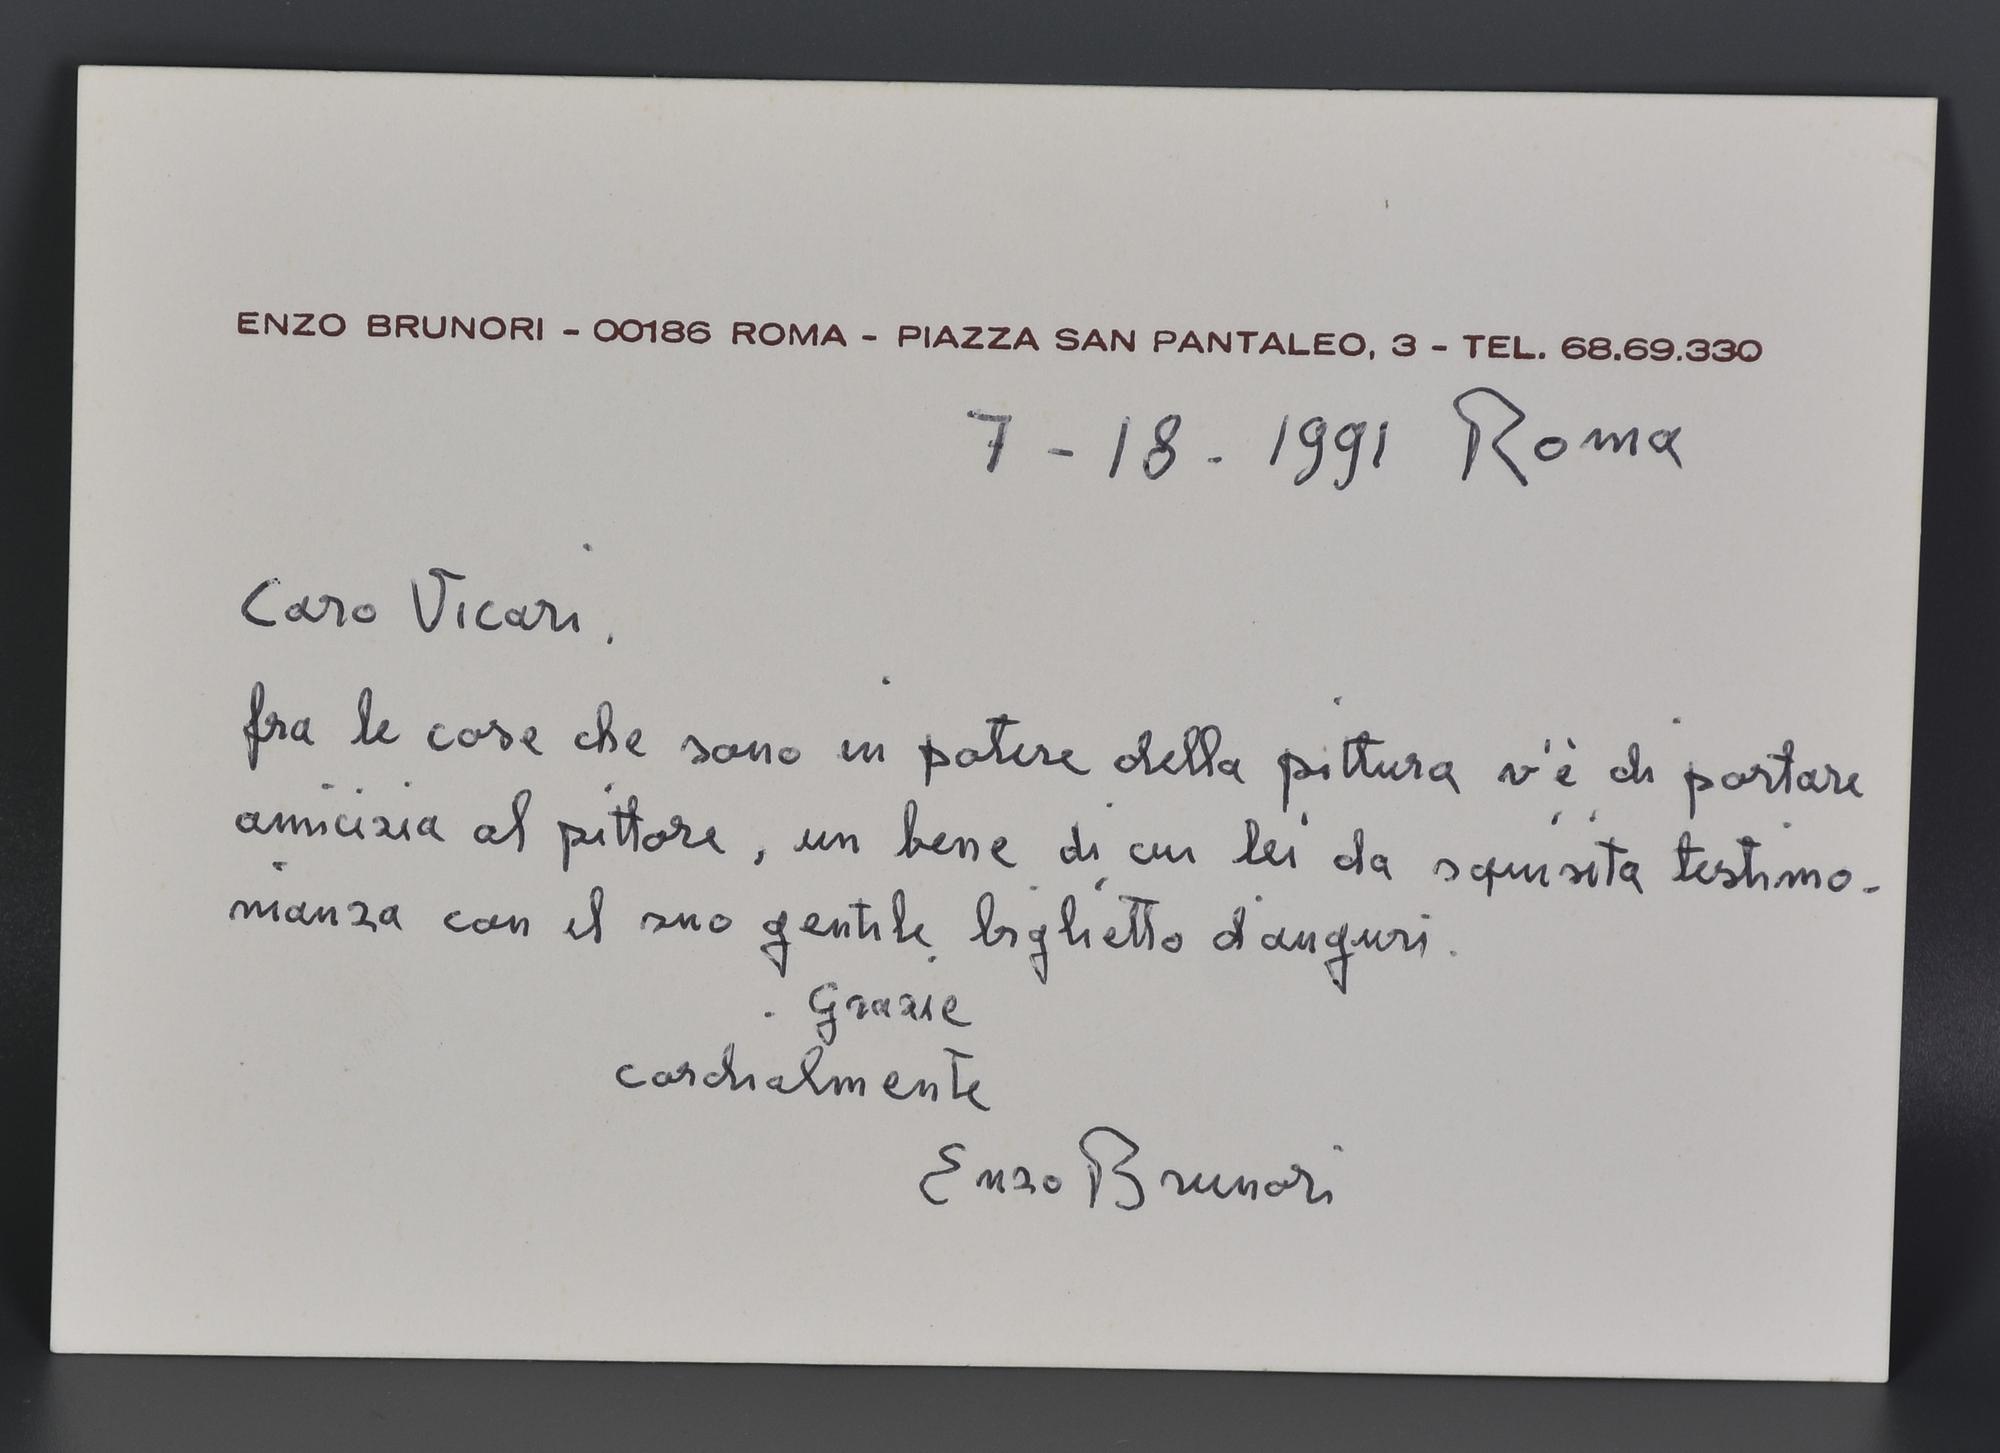 ENZO BRUNORI - 00186 ROMA - PIAZZA SAN PANTALEO, 3 - TEL. 68.69.330
7 - 18 - 1991 Roma
Caro Vicari,
fra le cose che sono in potere della pittura v'è di portare
amicizia al pittore, un bene di cui lei da squisita testimo-
nianza con il suo gentile biglietto d'auguri.
Grazie
cordialmente
Enzo Brunori